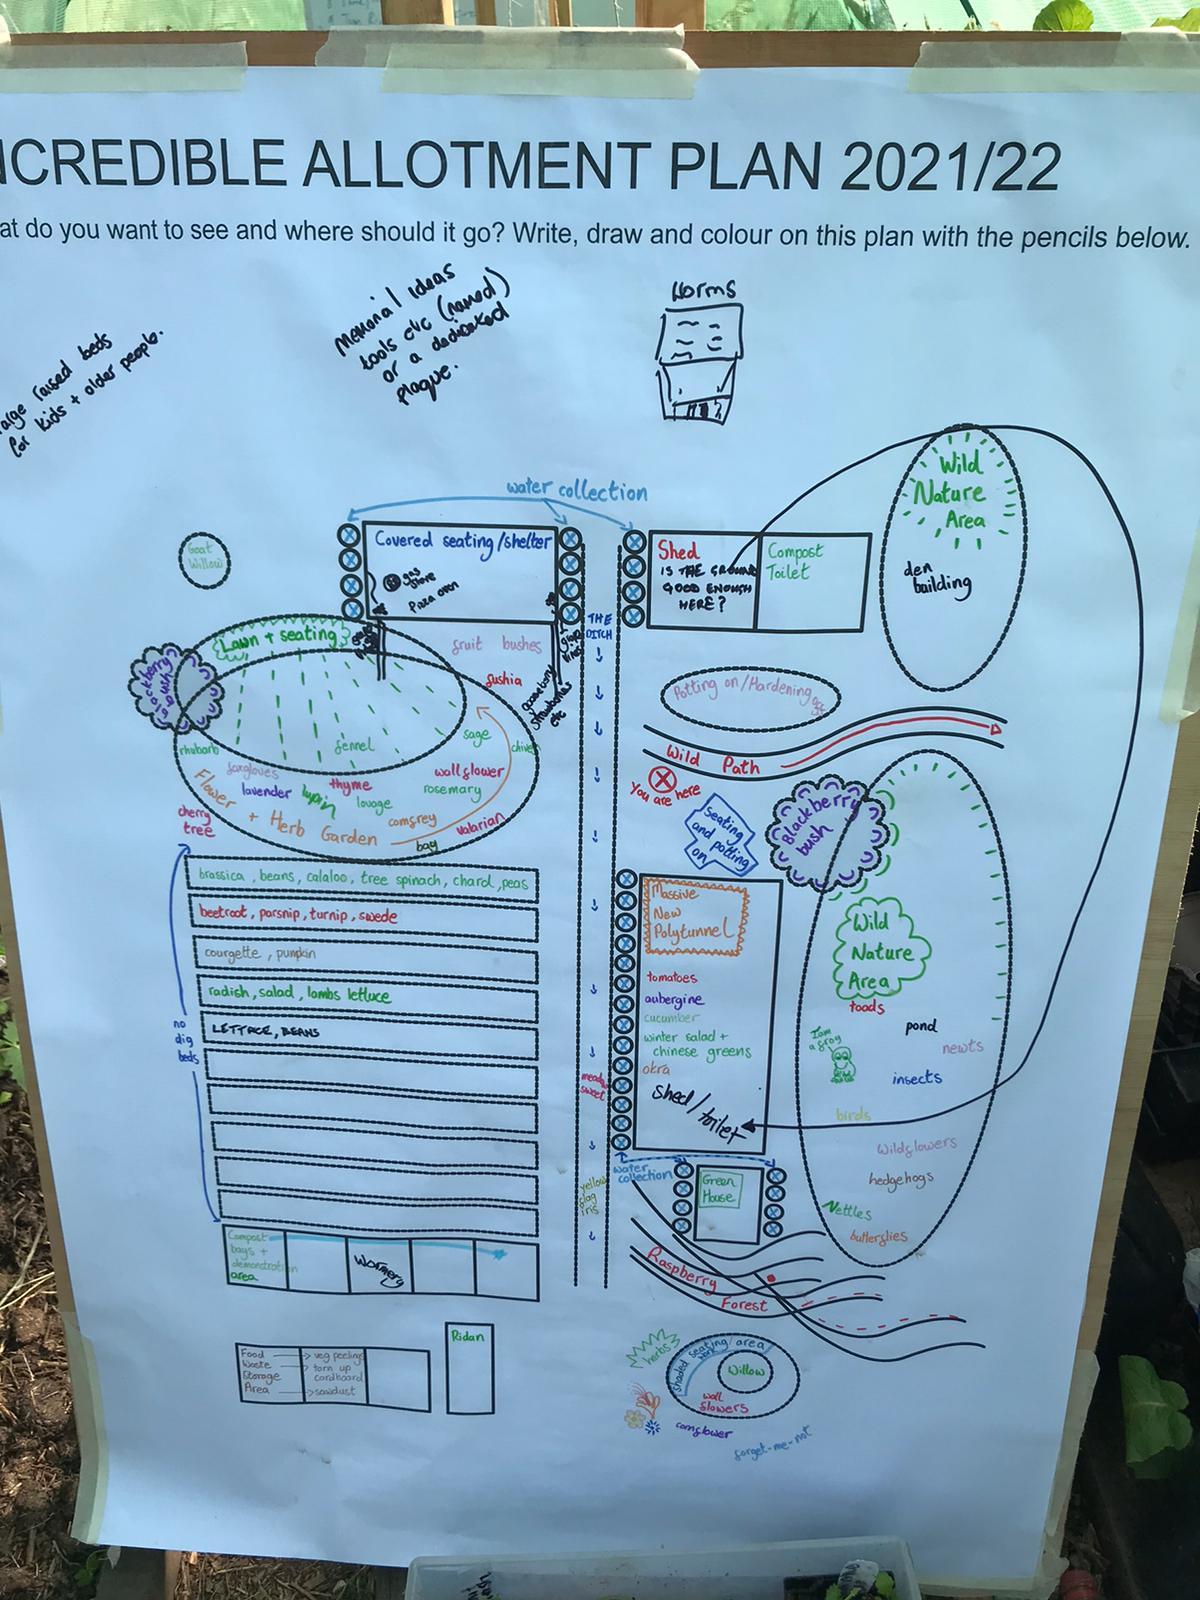 NCREDIBLE ALLOTMENT PLAN 2021/22
at do you want to see and where should it go? Write, draw and colour on this plan with the pencils below.
arge raised beds
for kids + older people.
Memorial ideas
tools etc (named)
or a dedicated
plaque.
Worms
water collection
Wild
Nature
Area
den
building
Goat
Willow
Covered seating/shelter
gas
stove
Pizza oven
Shed
IS THE GROUND
GOOD ENOUGH
HERE?
Compost
Toilet
THE
DITCH
Lawn + seating
Blackberry
bush
fruit bushes
fushia
gooseberry
strawberries
etc
Potting on/Hardening off
Wild Path
You are here
Seating
and potting
on
Blackberry
bush
rhubarb
fennel
sage
chives
foxgloves
lavender
lupin
thyme
lovage
wallflower
rosemary
comfrey
valarian
bay
Flower + Herb Garden
cherry
tree
brassica, beans, calaloo, tree spinach, chard, peas
beetroot, parsnip, turnip, swede
courgette, pumpkin
radish, salad, lambs lettuce
LETTACE, BEANS
no
dig
beds
meadow
sweet
yellow
flag
iris
Massive
New
Polytunnel
tomatoes
aubergine
cucumber
winter salad +
chinese greens
okra
Shed/toilet
Wild
Nature
Area
toads
pond
I am
a frog
newts
insects
birds
Wildflowers
hedgehogs
Nettles
butterflies
water
collection
Green
House
Raspberry
Forest
Compost
bays +
demonstration
area
Wormery
Food
Waste
Storage
Area
veg peelings
torn up
cardboard
sawdust
Ridan
herbs
shaded seating/area
Willow
wall
flowers
cornflower
forget-me-not